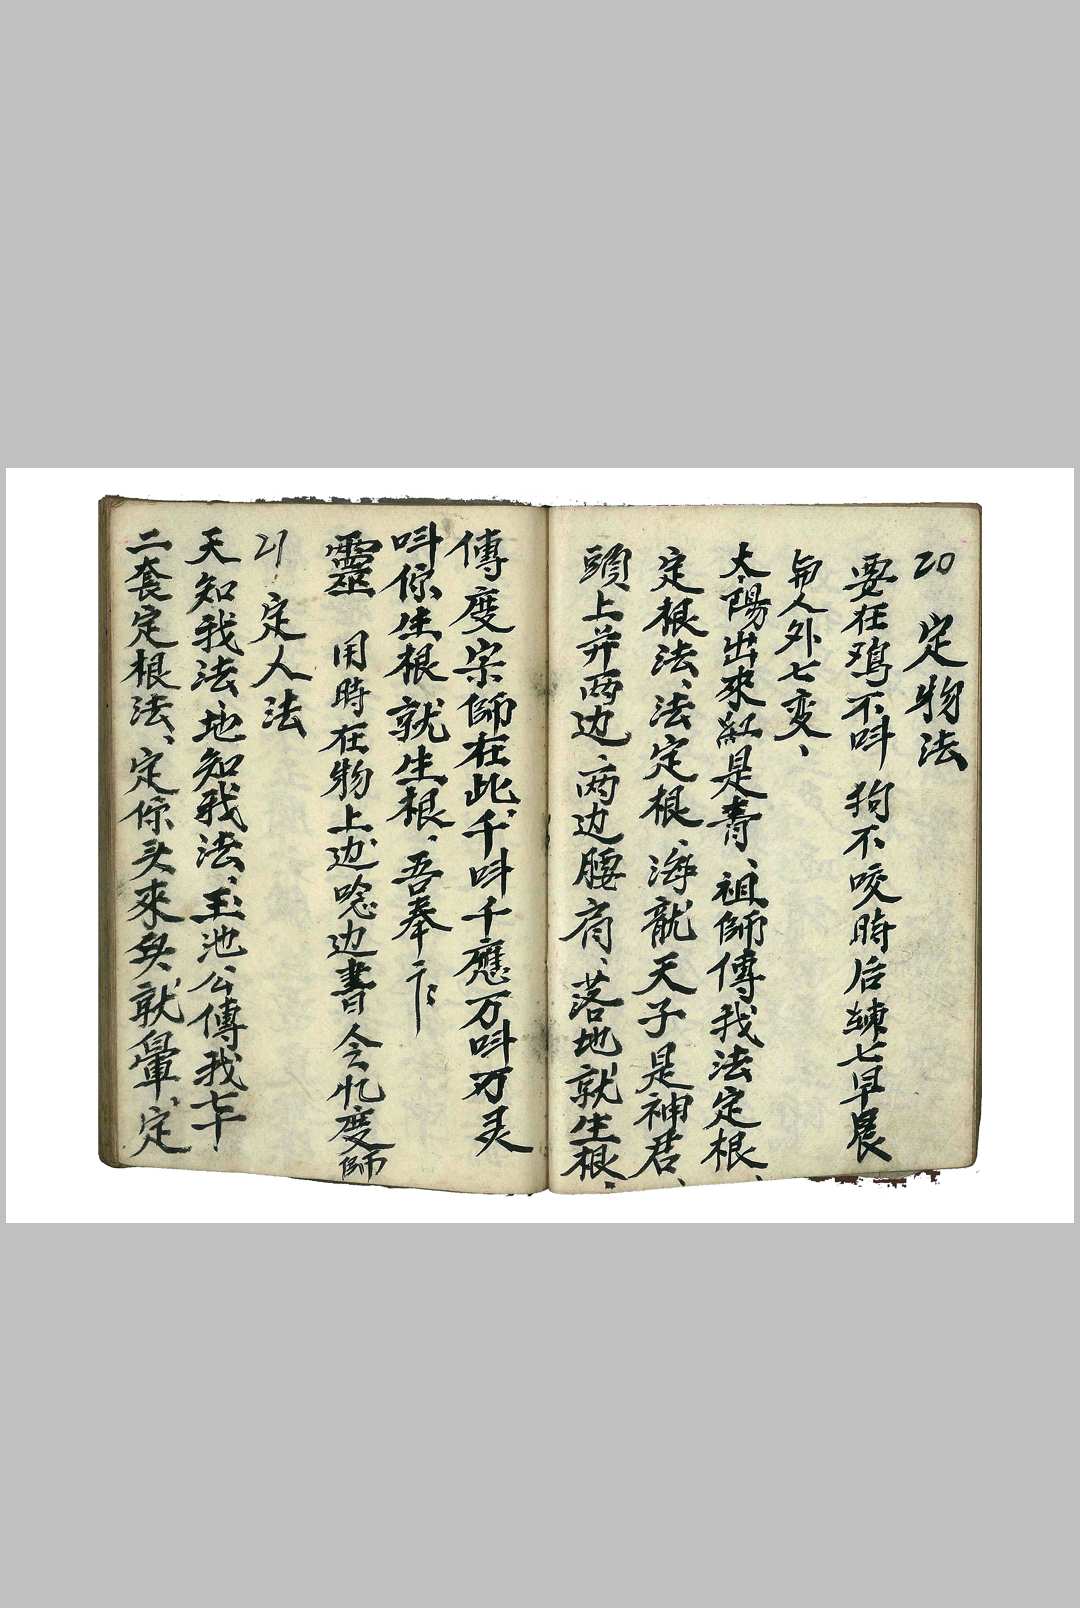 20 定物法
要在鸡不呌狗不咬時后練七早晨
每人外七变、
太陽出來紅是青、祖師傅我法定根、
定根法、法定根、海龍天子是神君、
頭上并两边、两边腰肩、落地就生根、
傅度宗師在此、千呌千應万呌万灵
呌你生根就生根、吾奉
靈 用時在物上边唸边書人会化度師
21 定人法
天知我法、地知我法、玉池公傅我七十
二套定根法、定你头來矣、就暈、定